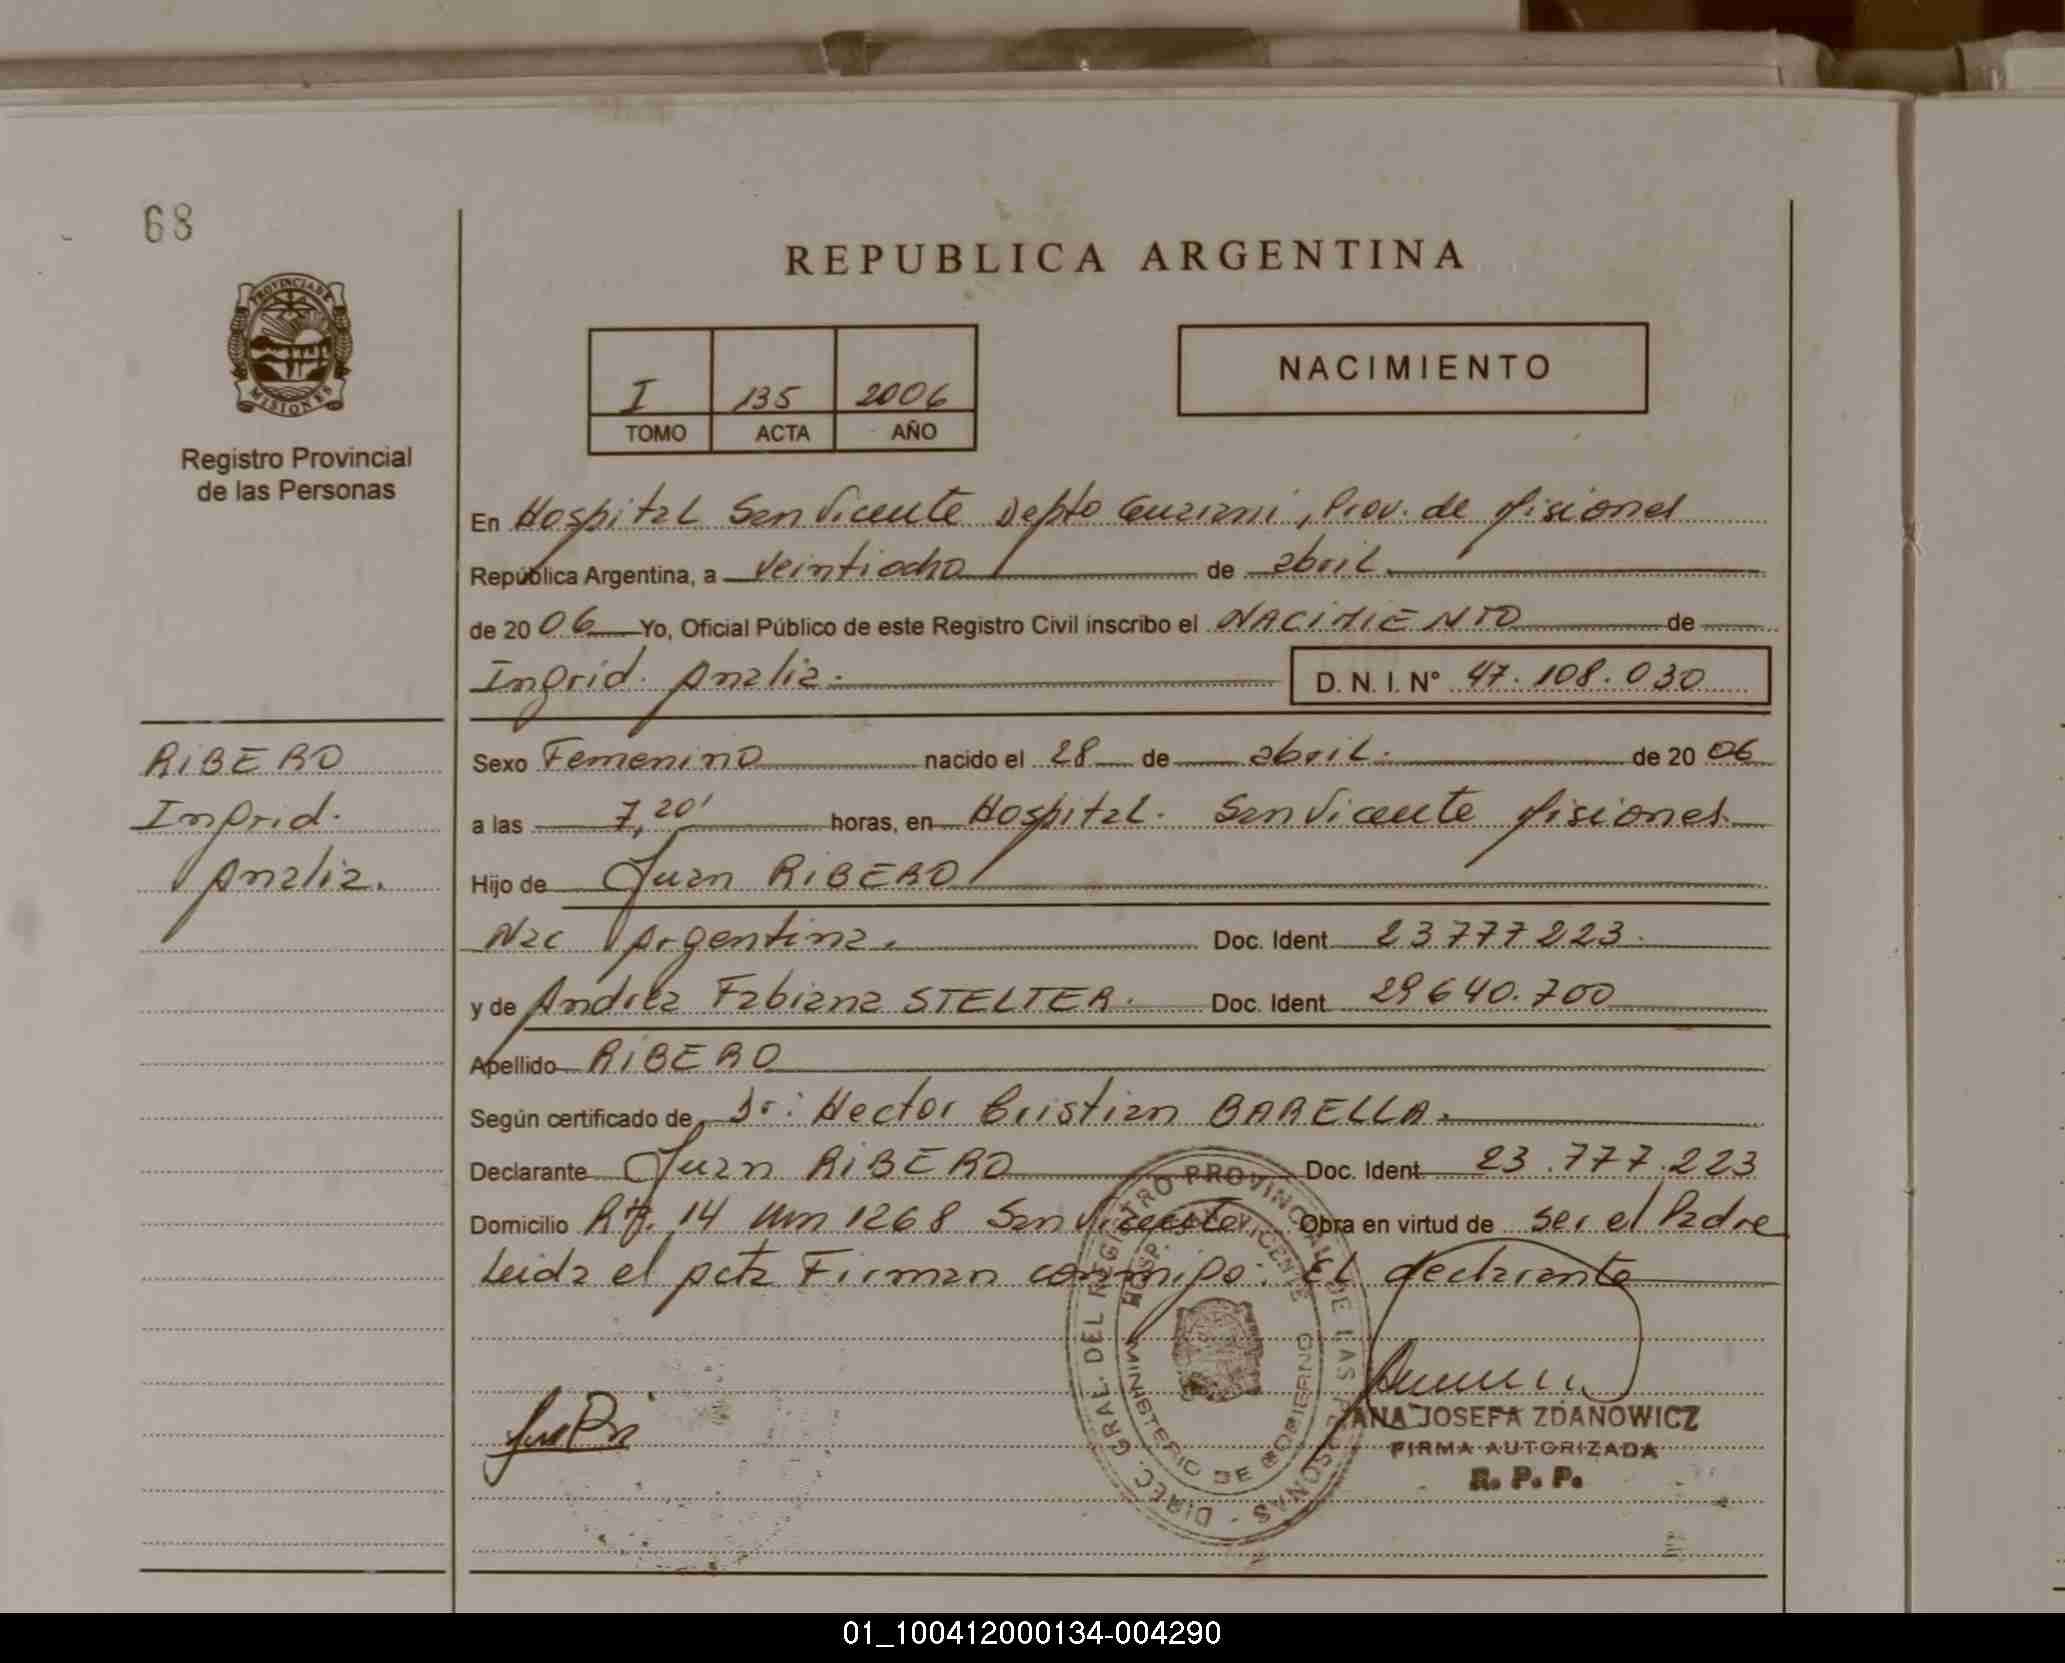 68
REPUBLICA ARGENTINA
PROVINCIA DE
MISIONES
Registro Provincial
de las Personas
I 135 2006
TOMO ACTA AÑO
NACIMIENTO
En Hospital San Vicente Depto Guarani, Prov. de Misiones
República Argentina, a veintiocho de abril.
de 2006 Yo, Oficial Público de este Registro Civil inscribo el NACIMIENTO de
Ingrid. Analia. D. N. I. N° 47.108.030
RIBERO
Ingrid.
Analia.
Sexo Femenino nacido el 28 de abril. de 2006
a las 7,20' horas, en Hospital. San Vicente Misiones.
Hijo de Juan RIBERO
Nac Argentina. Doc. Ident 23.777.223.
y de Andrea Fabiana STELTER. Doc. Ident 29640.700
Apellido RIBERO
Según certificado de Dr: Hector Cristian BARELLA.
Declarante Juan RIBERO Doc. Ident 23.777.223
Domicilio 14 Km 1268 San Vicente. Obra en virtud de ser el Padre
Leida el acta Firman conmigo: El declarante
DIREC. GRAL. DEL REGISTRO PROVINCIAL DE LAS PERSONAS -
HOSP. SAN VICENTE
MINISTERIO DE GOBIERNO
ANA JOSEFA ZDANOWICZ
FIRMA AUTORIZADA
R. P. P.
01_100412000134-004290